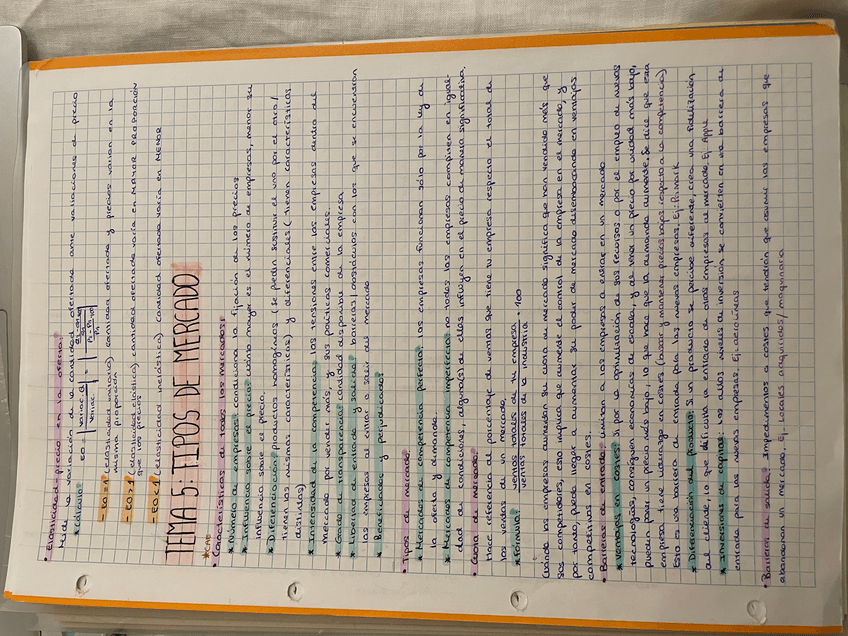 • Elasticidad-precio en la oferta:
Mide la variación de la cantidad ofertada ante variaciones de precio
*Cálculo: eo = 
- EO=1 (elasticidad unitaria) cantidad ofertada y precios varían en la
misma proporción
- EO>1 (elasticidad elástica) cantidad ofertada varía en MAYOR PROPORCIÓN
que los precios
- EO<1 (elasticidad inelástica) cantidad ofertada varía en MENOR
TEMA 5: TIPOS DE MERCADO
• Características de todos los mercados:
* Número de empresas: condiciona la fijación de los precios
* Influencia sobre el precio: cuanto mayor es el número de empresas, menor su
influencia sobre el precio.
* Diferenciación: productos homogéneos (se pueden sustituir el uno por el otro/
tienen las mismas características) y diferenciales (tienen características
distintas)
* Intensidad de la competencia: las tensiones entre las empresas dentro del
mercado por vender más, y sus prácticas comerciales.
* Grado de transparencia: cantidad disponible de la empresa
* Libertad de entrada y salida: barreras/obstáculos con los que se encuentran
las empresas al entrar o salir del mercado
* Beneficiados y perjudicados
• Tipos de mercado:
* Mercados de competencia perfecta: las empresas funcionan sólo por la ley de
la oferta y demanda.
* Mercados de competencia imperfecta: no todas las empresas compiten en igual-
dad de condiciones, alguna(s) de ellas influyen en el precio de manera significativa.
• Cuota de mercado:
Hace referencia al porcentaje de ventas que tiene tu empresa respecto el total de
las ventas de un mercado.
* Fórmula: ventas totales de tu empresa · 100
ventas totales de la industria
Cuando las empresas aumentan su cuota de mercado significa que han vendido más que
sus competidores, esto implica que aumente el control de la empresa en el mercado, y
por tanto, pueda llegar a aumentar su poder de mercado desembocando en ventajas
competitivas en costes.
• Barreras de entrada: limitan a las empresas a entrar en un mercado
* Ventajas en costes: Si por la acumulación de sus recursos o por el empleo de nuevas
tecnologías, consiguen economías de escala y de tener un precio por unidad más bajo,
pueden poner un precio más bajo, lo que hace que la demanda aumente. Se dice que esa
empresa tiene liderazgo en costes (busca y mantiene precios bajos respecto a la competencia)
Esto es una barrera de entrada para las nuevas empresas. Ej: Primark
* Diferenciación del producto: Si un producto se percibe diferente, crea una fidelización
del cliente, lo que dificulta la entrada de otras empresas al mercado. Ej: Apple
* Inversiones de capital: Los altos niveles de inversión se convierten en una barrera de
entrada para las nuevas empresas. Ej: aerolíneas
• Barreras de salida: Impedimentos o costes que tendrán que asumir las empresas que
abandonan un mercado. Ej: Locales adquiridos/maquinaria